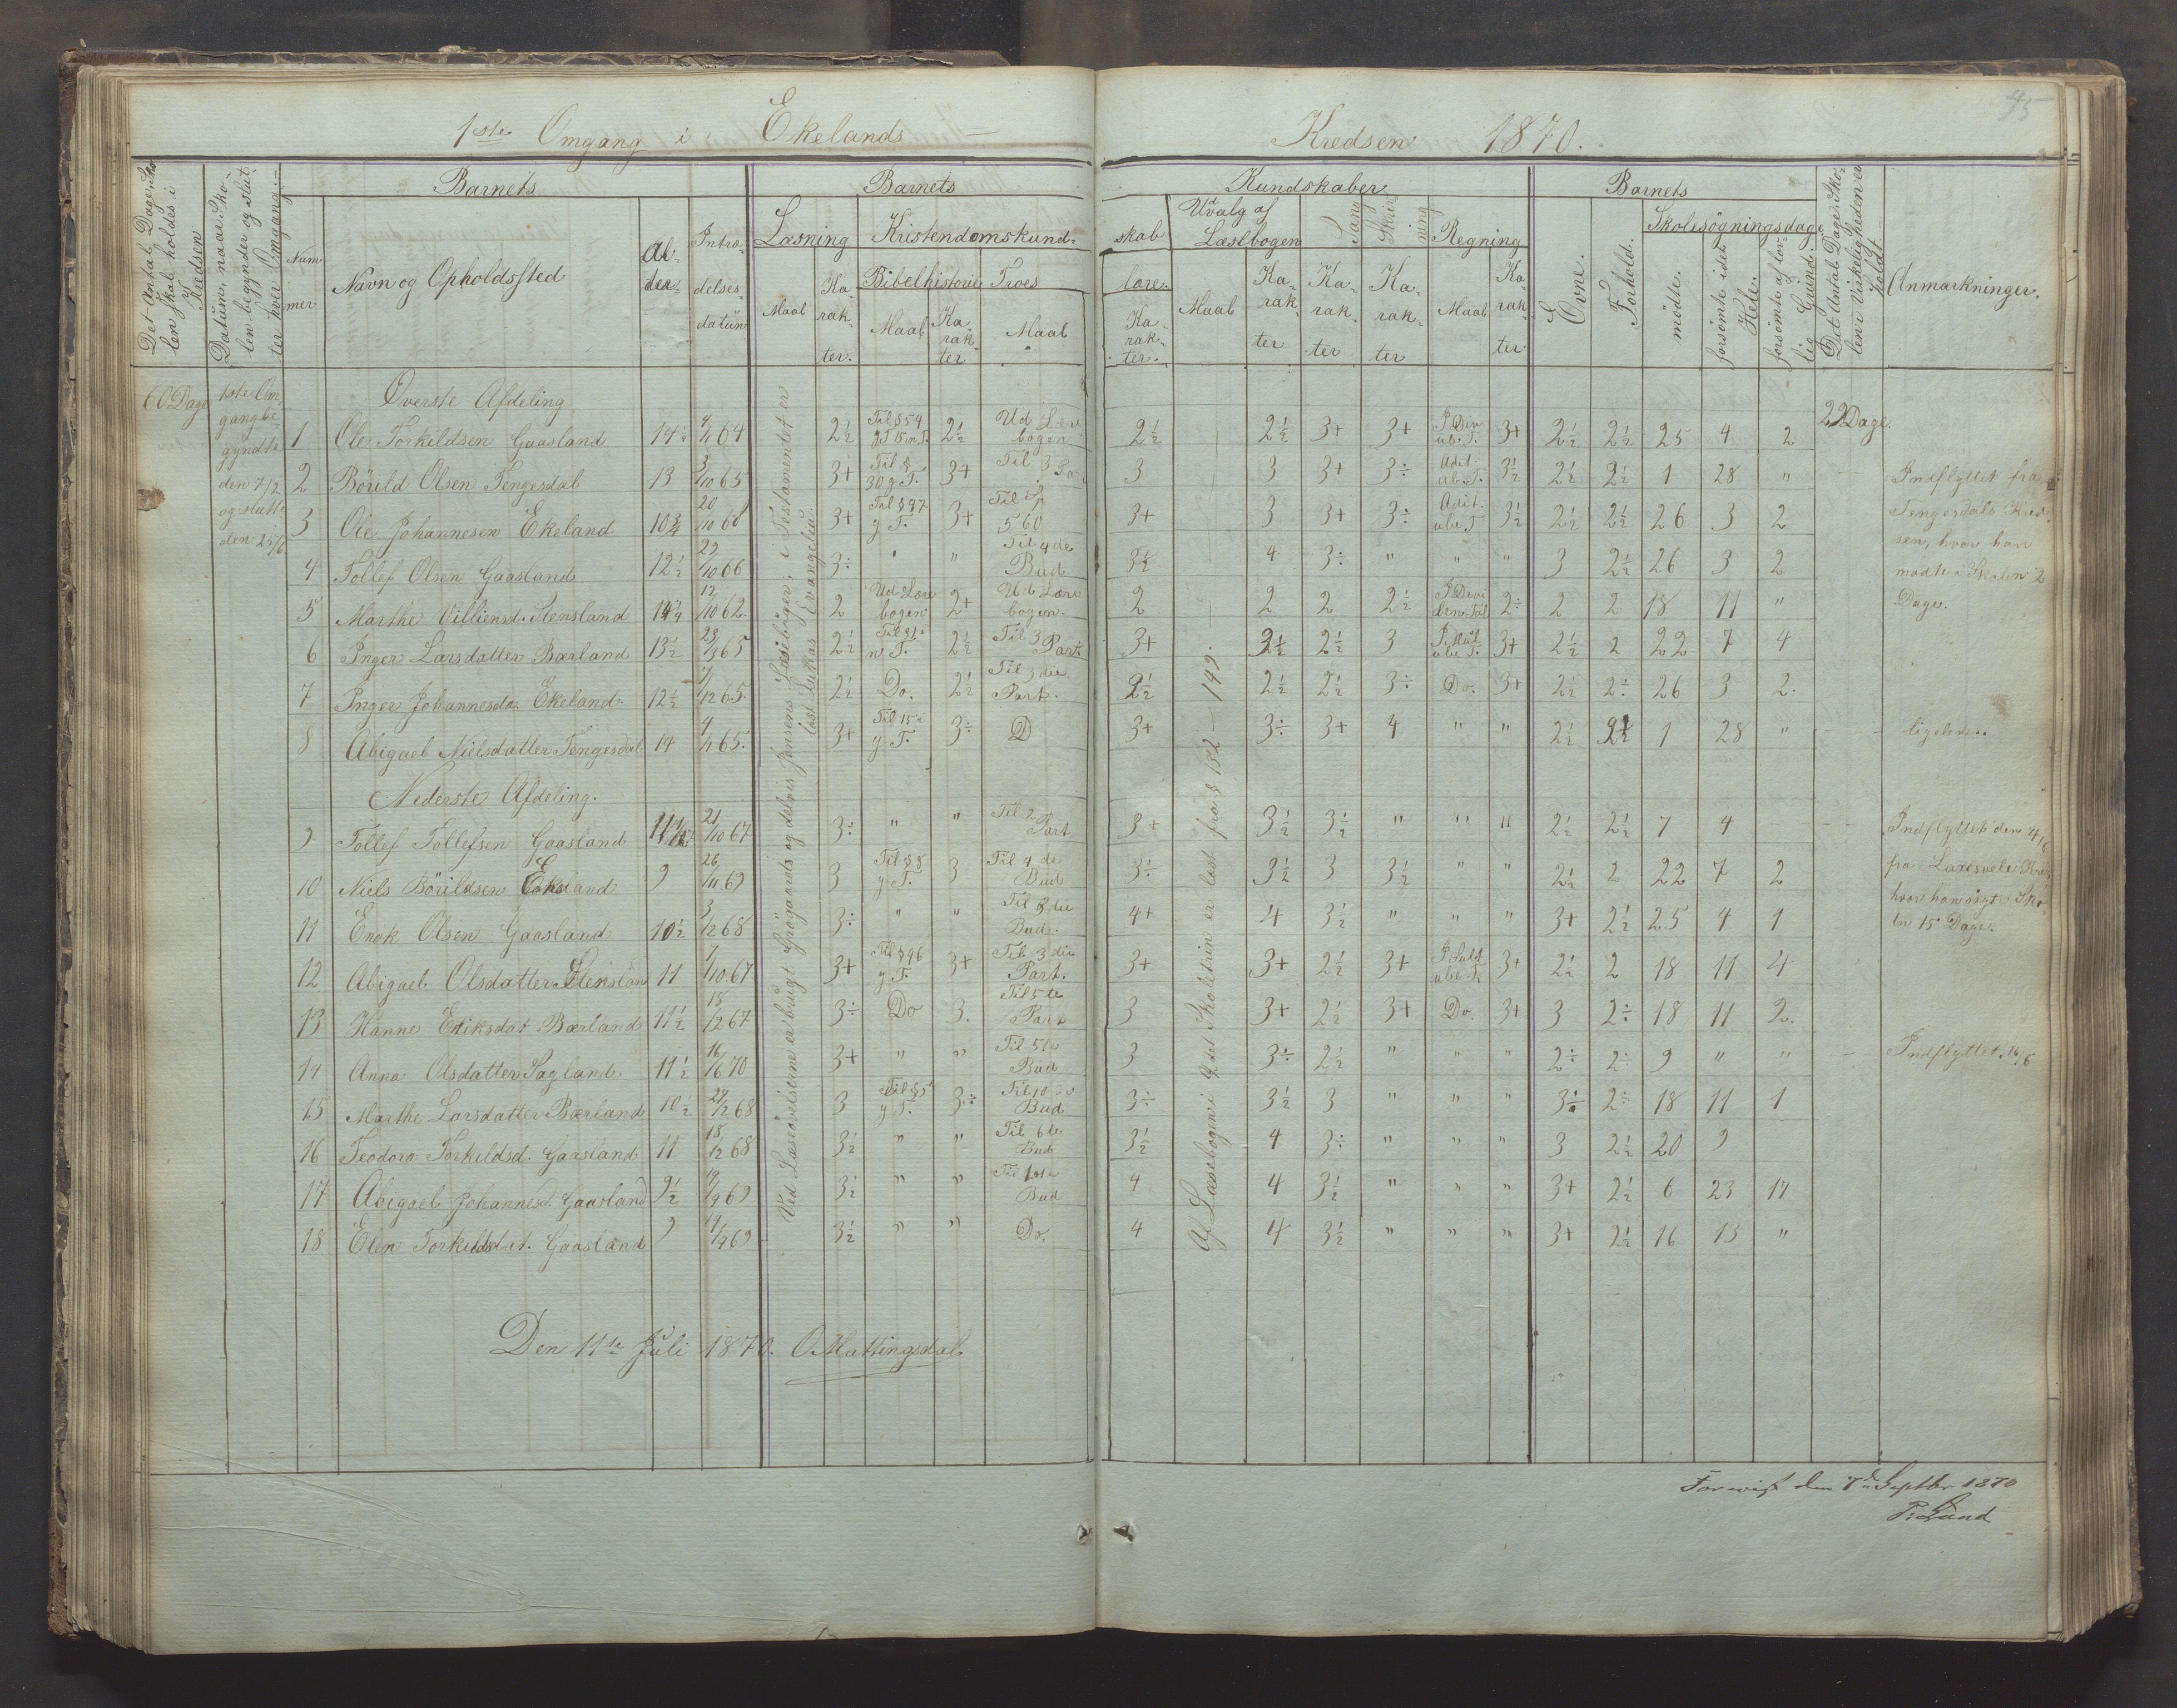 45
1ste Omgang i Ekelands Kredsen 1870.
Det Antal Dage, Skolen skal holdes i Kredsen
Datum, naar Skolen begynder og slutter hver Omgang.
Barnets
Nummer
Navn og Opholdssted
Alder
Intrædelsesdatum
Barnets Kundskaber
Læsning
Maal
Karakter.
Kristendomskundskab
Bibelhistorie
Maal
Karakter
Troeslære.
Maal
Karakter.
Udvalg af Læsebogen
Maal
Karakter
Sang
Karakter
Skrivning
Karakter
Regning
Maal
Karakter
Barnets
Evne.
Forhold.
Skolesögningsdage
mödte.
forsömte i det Hele.
forsömte af lovlig Grund.
Det Antal Dage Skolen i Virkeligheden er holdt
Anmærkninger.
60 Dage
1ste Omgang begyndte den 7/2 og slutte den 25/6
Ved Læseövelserne er brugt Grögaards og delvis Jensens Læsebøger; i Testamentet er læst Lukas Evangelium.
Af Læsebogen i 2det Skoletrin er læst fra § 132 – 149.
22 Dage.
Överste Afdeling
1 Ole Torkildsen Gaasland 14½ 4/11 64 2½ Til § 59 g T. 2½ Ud Lærebogen 2½ 2½ 3+ 3+ I Div. ube. T. 3+ 2½ 2½ 25 4 2
2 Börild Olsen Tengesdal 13 3/10 65 3+ Til § 30 g T. 3+ Til 3 Par. 3 3 3+ 3÷ Adit. ube. T. 3½ 2½ 2½ 1 28 "
Indflyttet fra Tengesdals Kredsen, hvor han mødte i Skolen 2 Dage.
3 Ole Johannesen Ekeland 10¾ 20/10 68 3+ Til § 97 g T. 3+ Til Sp 560 3+ 3 3+ 3÷ Adit. ube T 3½ 2½ 2½ 26 3 2
4 Tollef Olsen Gaasland 12½ 29/10 66 3÷ " " Til 4de Bud 3½ 4 3÷ " " " 3 2½ 26 3 2
5 Marthe Villiensd. Stensland 14¼ 12/10 62. 2 Ud Lærebogen 2+ Ud Lærebogen. 2 2 2 2½ 2÷ 2 2 18 11 "
6 Inger Larsdatter Bærland 13½ 23/3 65 2½ n T. 2½ Til 3 Part. 3+ 2½ 2½ 3 I Mul. ube T. 3+ 2½ 2 22 7 4
7 Inger Johannesda. Ekeland 12½ 7/12 65. 2½ Do. 2½ Til 3die Part. 2½ 2½ 2½ 3÷ Do. 3+ 2½ 2÷ 26 3 2.
8 Abigael Nielsdatter Tengesdal 14 4/11 65. 3+ Til 15 g T. 3÷ D 3+ 3÷ 3+ 4 " " 2½ 2½ 1 28 "
ligeledes.
Nederste Afdeling.
9 Tollef Tollefsen Gaasland 11½ 21/10 67 3÷ " " Til 2 Part 3+ 3½ 3½ " " " 2½ 2½ 7 4
Indflyttet den 4/6 fra Laxesvele Kreds hvor han søgte Skolen 15 Dage.
10 Niels Börildsen Eekeland 9 26/11 69 3 Til § 8 g T. 3 Til 4de Bud 3÷ 3½ 3 3½ " " 2½ 2 22 7 2
11 Enok Olsen Gaasland 10½ 3/12 68 3÷ " " Til 3die Bud. 4+ 4 3½ " " " 3+ 2½ 25 4 1
12 Abigael Olsdatter Stenslan 11 1/10 67 3+ Til § 96 g T. 3+ Til 3die Part. 3+ 3+ 2½ 3+ I Subt ube T. 3+ 2½ 2 18 11 4
13 Hanne Eriksdat. Bærland 11½ 15/12 67 3÷ Do 3. Til 5te Part 3 3+ 2½ 3+ Do. 3+ 3 2÷ 18 11 2.
14 Anna Olsdatter Sagland. 11½ 16/6 70 3+ " " Til 5te Bud 3 3÷ 2½ " " " 2÷ 2÷ 9 " "
Indflyttet 14/6
15 Marthe Larsdatter Bærland 10½ 29/12 68 3 Til § 5 g T. 3÷ Til 10de Bud 3÷ 3½ 3 " " " 3÷ 2÷ 18 11 1
16 Teodora Torkildsd. Gaasland 11 18/12 68 3½ " " Til 6te Bud 3½ 4 3÷ " " " 3 2½ 20 9
17 Abigael Johannesd. Gaasland 9½ 19/9 69 3½ " " Til 1ste Bud 4 4 3½ " " " 3+ 2½ 6 23 17
18 Elen Torkildsdat. Gaasland 9 14/9 69 3½ " " Do. 4 4 3½ " " " 3+ 2½ 16 13 "
Den 11te Juli 1870. O Mattingsdal.
Forevist den 7de Septbr 1870
P. Lund